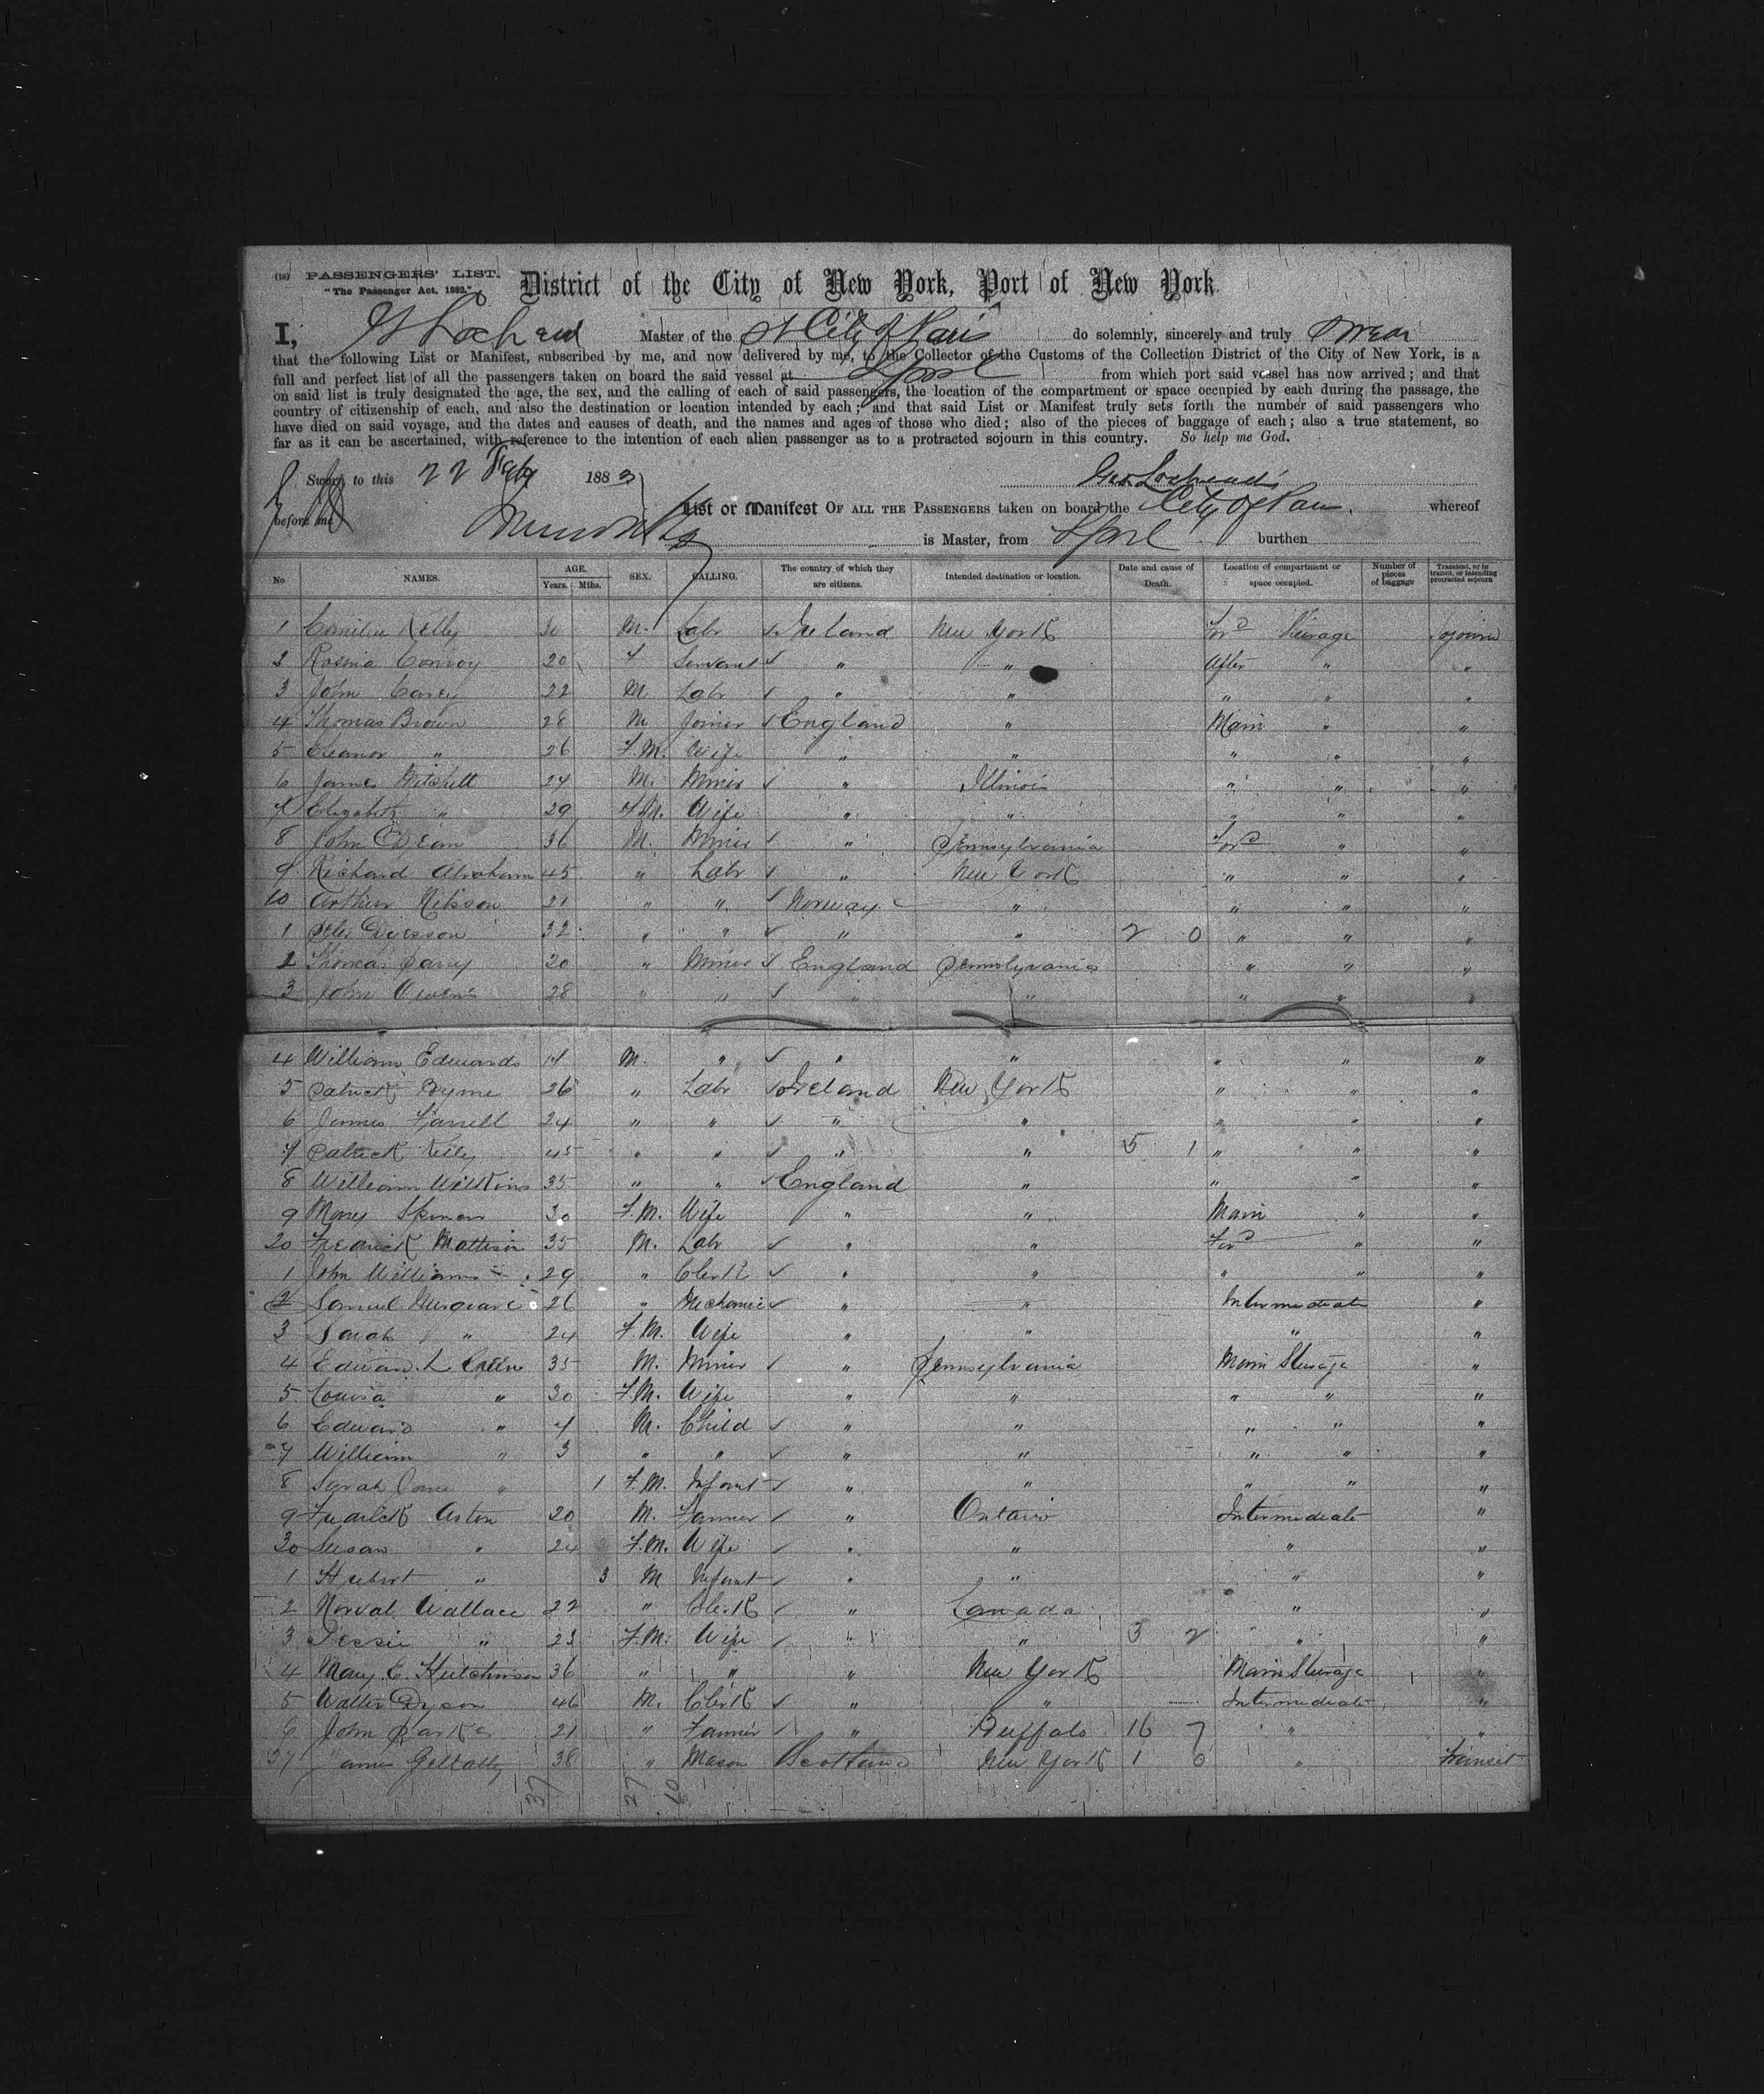 (18) PASSENGERS' LIST.
"The Passenger Act, 1882."
District of the City of New York, Port of New York.
I, G Lochead Master of the SS City of Paris do solemnly, sincerely and truly swear
that the following List or Manifest, subscribed by me, and now delivered by me, to the Collector of the Customs of the Collection District of the City of New York, is a
full and perfect list of all the passengers taken on board the said vessel at Lpool from which port said vessel has now arrived; and that
on said list is truly designated the age, the sex, and the calling of each of said passengers, the location of the compartment or space occupied by each during the passage, the
country of citizenship of each, and also the destination or location intended by each; and that said List or Manifest truly sets forth the number of said passengers who
have died on said voyage, and the dates and causes of death, and the names and ages of those who died; also of the pieces of baggage of each; also a true statement, so
far as it can be ascertained, with reference to the intention of each alien passenger as to a protracted sojourn in this country. So help me God.
Sworn to this 22 Feby 1883 Geo. Lochead
before me
List or Manifest OF ALL THE PASSENGERS taken on board the City of Paris. whereof
is Master, from Lpool burthen
No NAMES. AGE. Years. Mths. SEX. CALLING. The country of which they are citizens. Intended destination or location. Date and cause of Death. Location of compartment or space occupied. Number of pieces of baggage Transient, or in transit, or intending protracted sojourn
1 Kelly 30 M. Labr Ireland New York Ford Steerage Sojourn
2 Rosina Conroy 20 F Servant " " After " "
3 John Carey 22 M Labr " " " " "
4 Thomas Brown 28 M Joiner England " Main " "
5 Eleanor " 26 F.M. Wife " " " " "
6 James Mitchell 24 M. Miner " Illinois " " "
7 Elizabeth " 29 F.M. Wife " " " " "
8 John Dean 36 M. Miner " Pennsylvania Ford " "
9 Richard Abraham 45 " Labr " New York " " "
10 Arthur Nilsson 21 " " Norway " " " "
1 32 " " " " 2 0 " " "
2 Thomas Parry 30 " Miner England Pennsylvania " " "
3 John Owens 28 " " " " " " "
4 William Edwards 14 M. " " " " " "
5 Patrick Byrne 26 " Labr Ireland New York " " "
6 James Farrell 24 " " " " " " "
7 Patrick Kelly 45 " " " " 5 1 " " "
8 William Wilkins 35 " " England " " " "
9 Mary Skinner 30 F.M. Wife " " Main " "
20 Frederick Mattison 35 M. Labr " " Ford " "
1 John Williams 29 " Clerk " " " " "
2 Samuel Musgrave 26 " Mechanic " " Intermediate "
3 Sarah " 24 F.M. Wife " " " "
4 Edward L 35 M. Miner " Pennsylvania Main Steerage "
5 Louisa " 30 F.M. Wife " " " " "
6 Edward " 4 M. Child " " " " "
7 William " 3 " " " " " " "
8 Sarah Jane " 1 F.M. Infant " " " " "
9 Fredrick Aston 20 M. Farmer " Ontario Intermediate "
30 Susan " 24 F.M. Wife " " " "
1 Hubert " 3 M Infant " " " "
2 Norval Wallace 22 " Clerk " Canada " "
3 Jessie " 23 F.M. Wife " " 3 2 " "
4 Mary E. Hutchinson 36 " " " New York Main Steerage "
5 Walter Dyson 46 M. Clerk " " Intermediate "
6 John Parker 21 " Farmer " Buffalo 16 7 " "
37 James 38 " Mason Scotland New York 1 0 " Transit
37 27 10